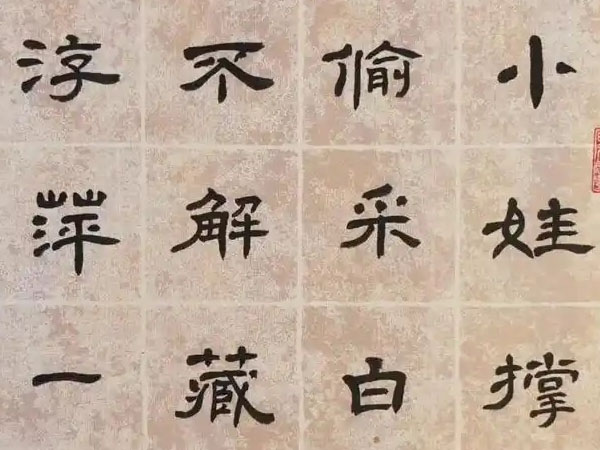 小娃撑
偷采白
不解藏
淳萍一